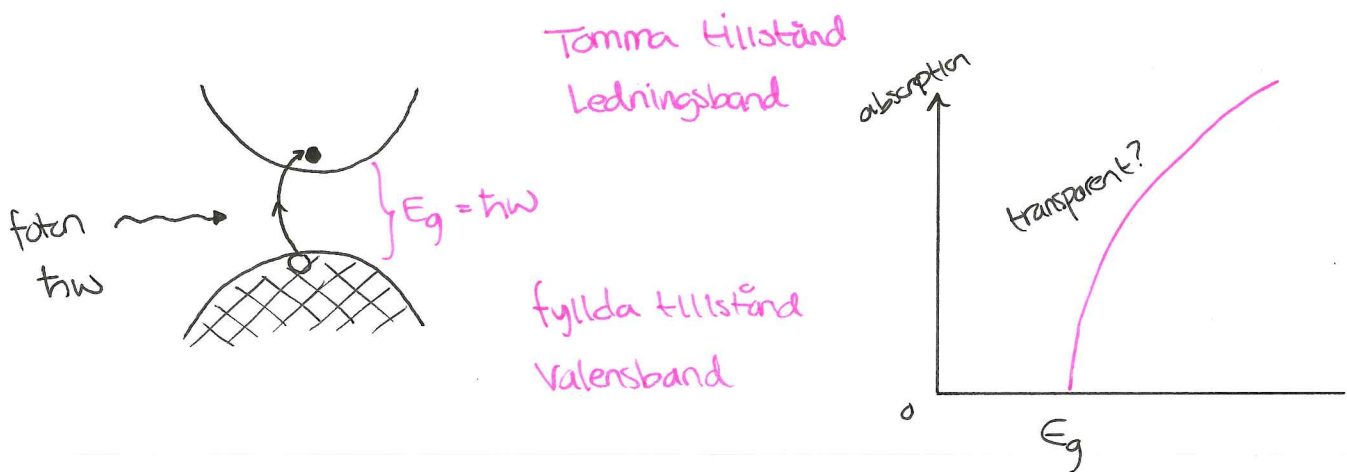 Tomma tillstånd
Ledningsband
foton
ħω
E_g = ħω
fyllda tillstånd
Valensband
absorption
transparent?
0
E_g